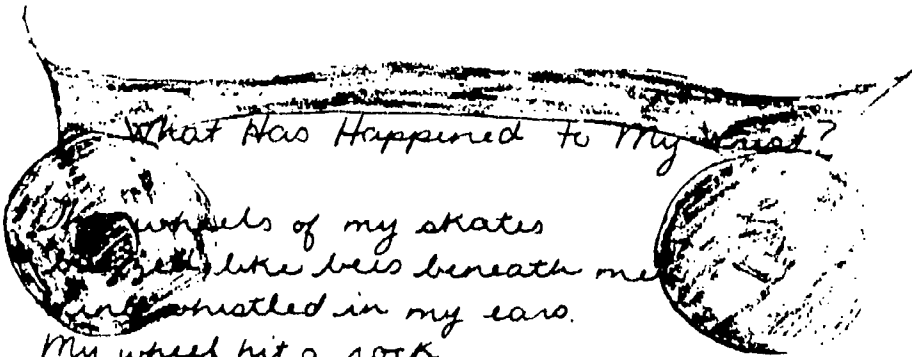 What Has Happened to My Wrist?
The wheels of my skates
buzzed like bees beneath me
wind whistled in my ears.
My wheel hit a rock